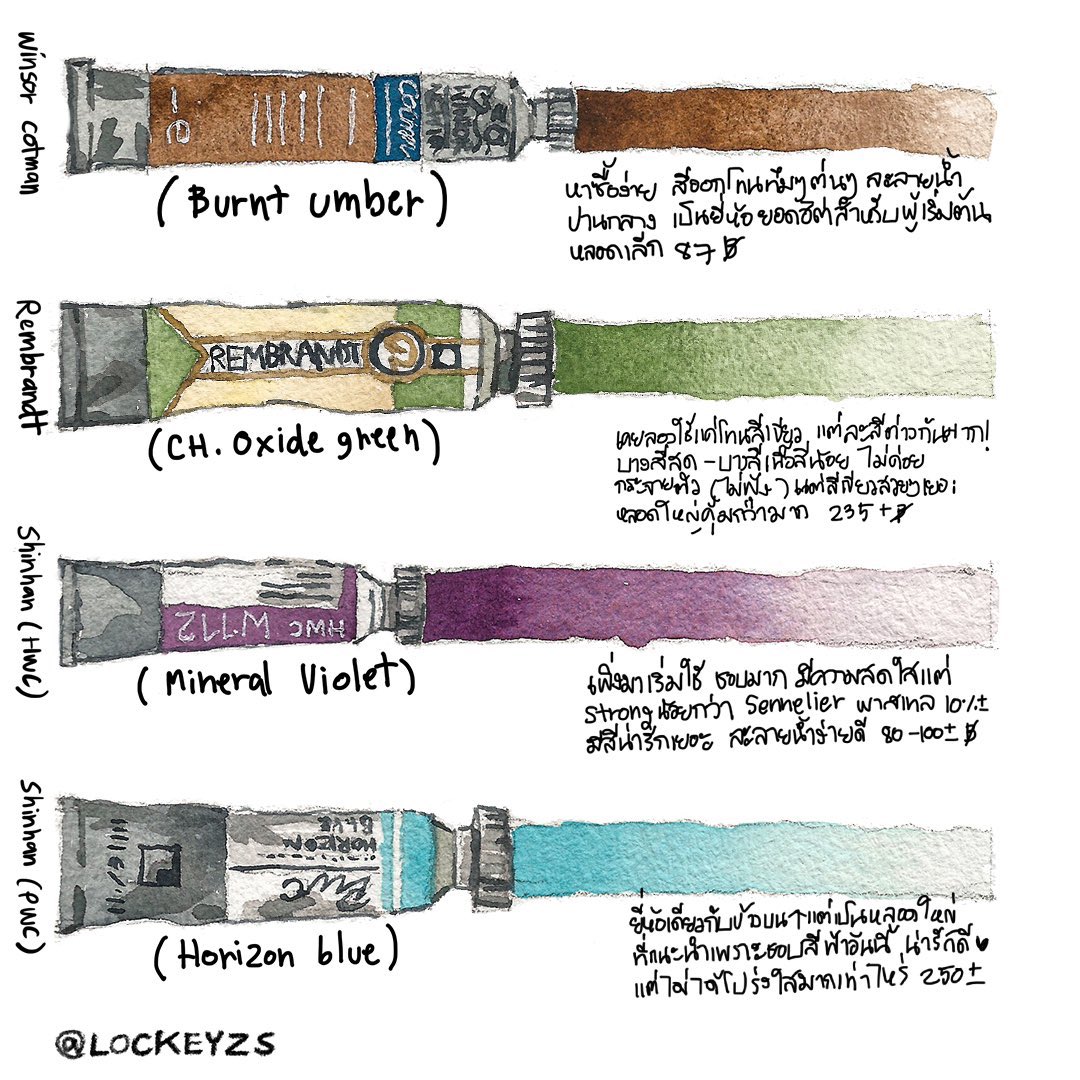 Winsor Cotman
(Burnt umber)
หาซื้อง่าย สีออกโทนทึมๆตุ่นๆ ละลายน้ำ
ปานกลาง เป็นยี่ห้อยอดฮิตสำหรับผู้เริ่มต้น
หลอดเล็ก 87 ฿
Rembrandt
REMBRANDT
(CH. Oxide green)
เคยลองใช้แค่โทนสีเขียว แต่ละสีต่างกันมาก!
บางสีสด - บางสีเนื้อสีน้อย ไม่ค่อย
กระจายตัว (ไม่ฟุ้ง) แต่สีเขียวสวยๆเยอะ
หลอดใหญ่คุ้มกว่ามาก 235+฿
Shinhan (HWC)
HWC W112
(Mineral Violet)
เพิ่งมาเริ่มใช้ ชอบมาก มีความสดใสแต่
strong น้อยกว่า Sennelier พาสเทล 10%±
มีสีน่ารักเยอะ ละลายน้ำง่ายดี 80-100± ฿
Shinhan (PWC)
HORIZON
BLUE
PWC
(Horizon blue)
ยี่ห้อเดียวกับข้างบน↑แต่เป็นหลอดใหญ่
ที่แนะนำเพราะชอบสีฟ้าอันนี้ น่ารักดี♥
แต่ไม่ได้โปร่งใสมากเท่าไหร่ 250±
@LOCKEYZS